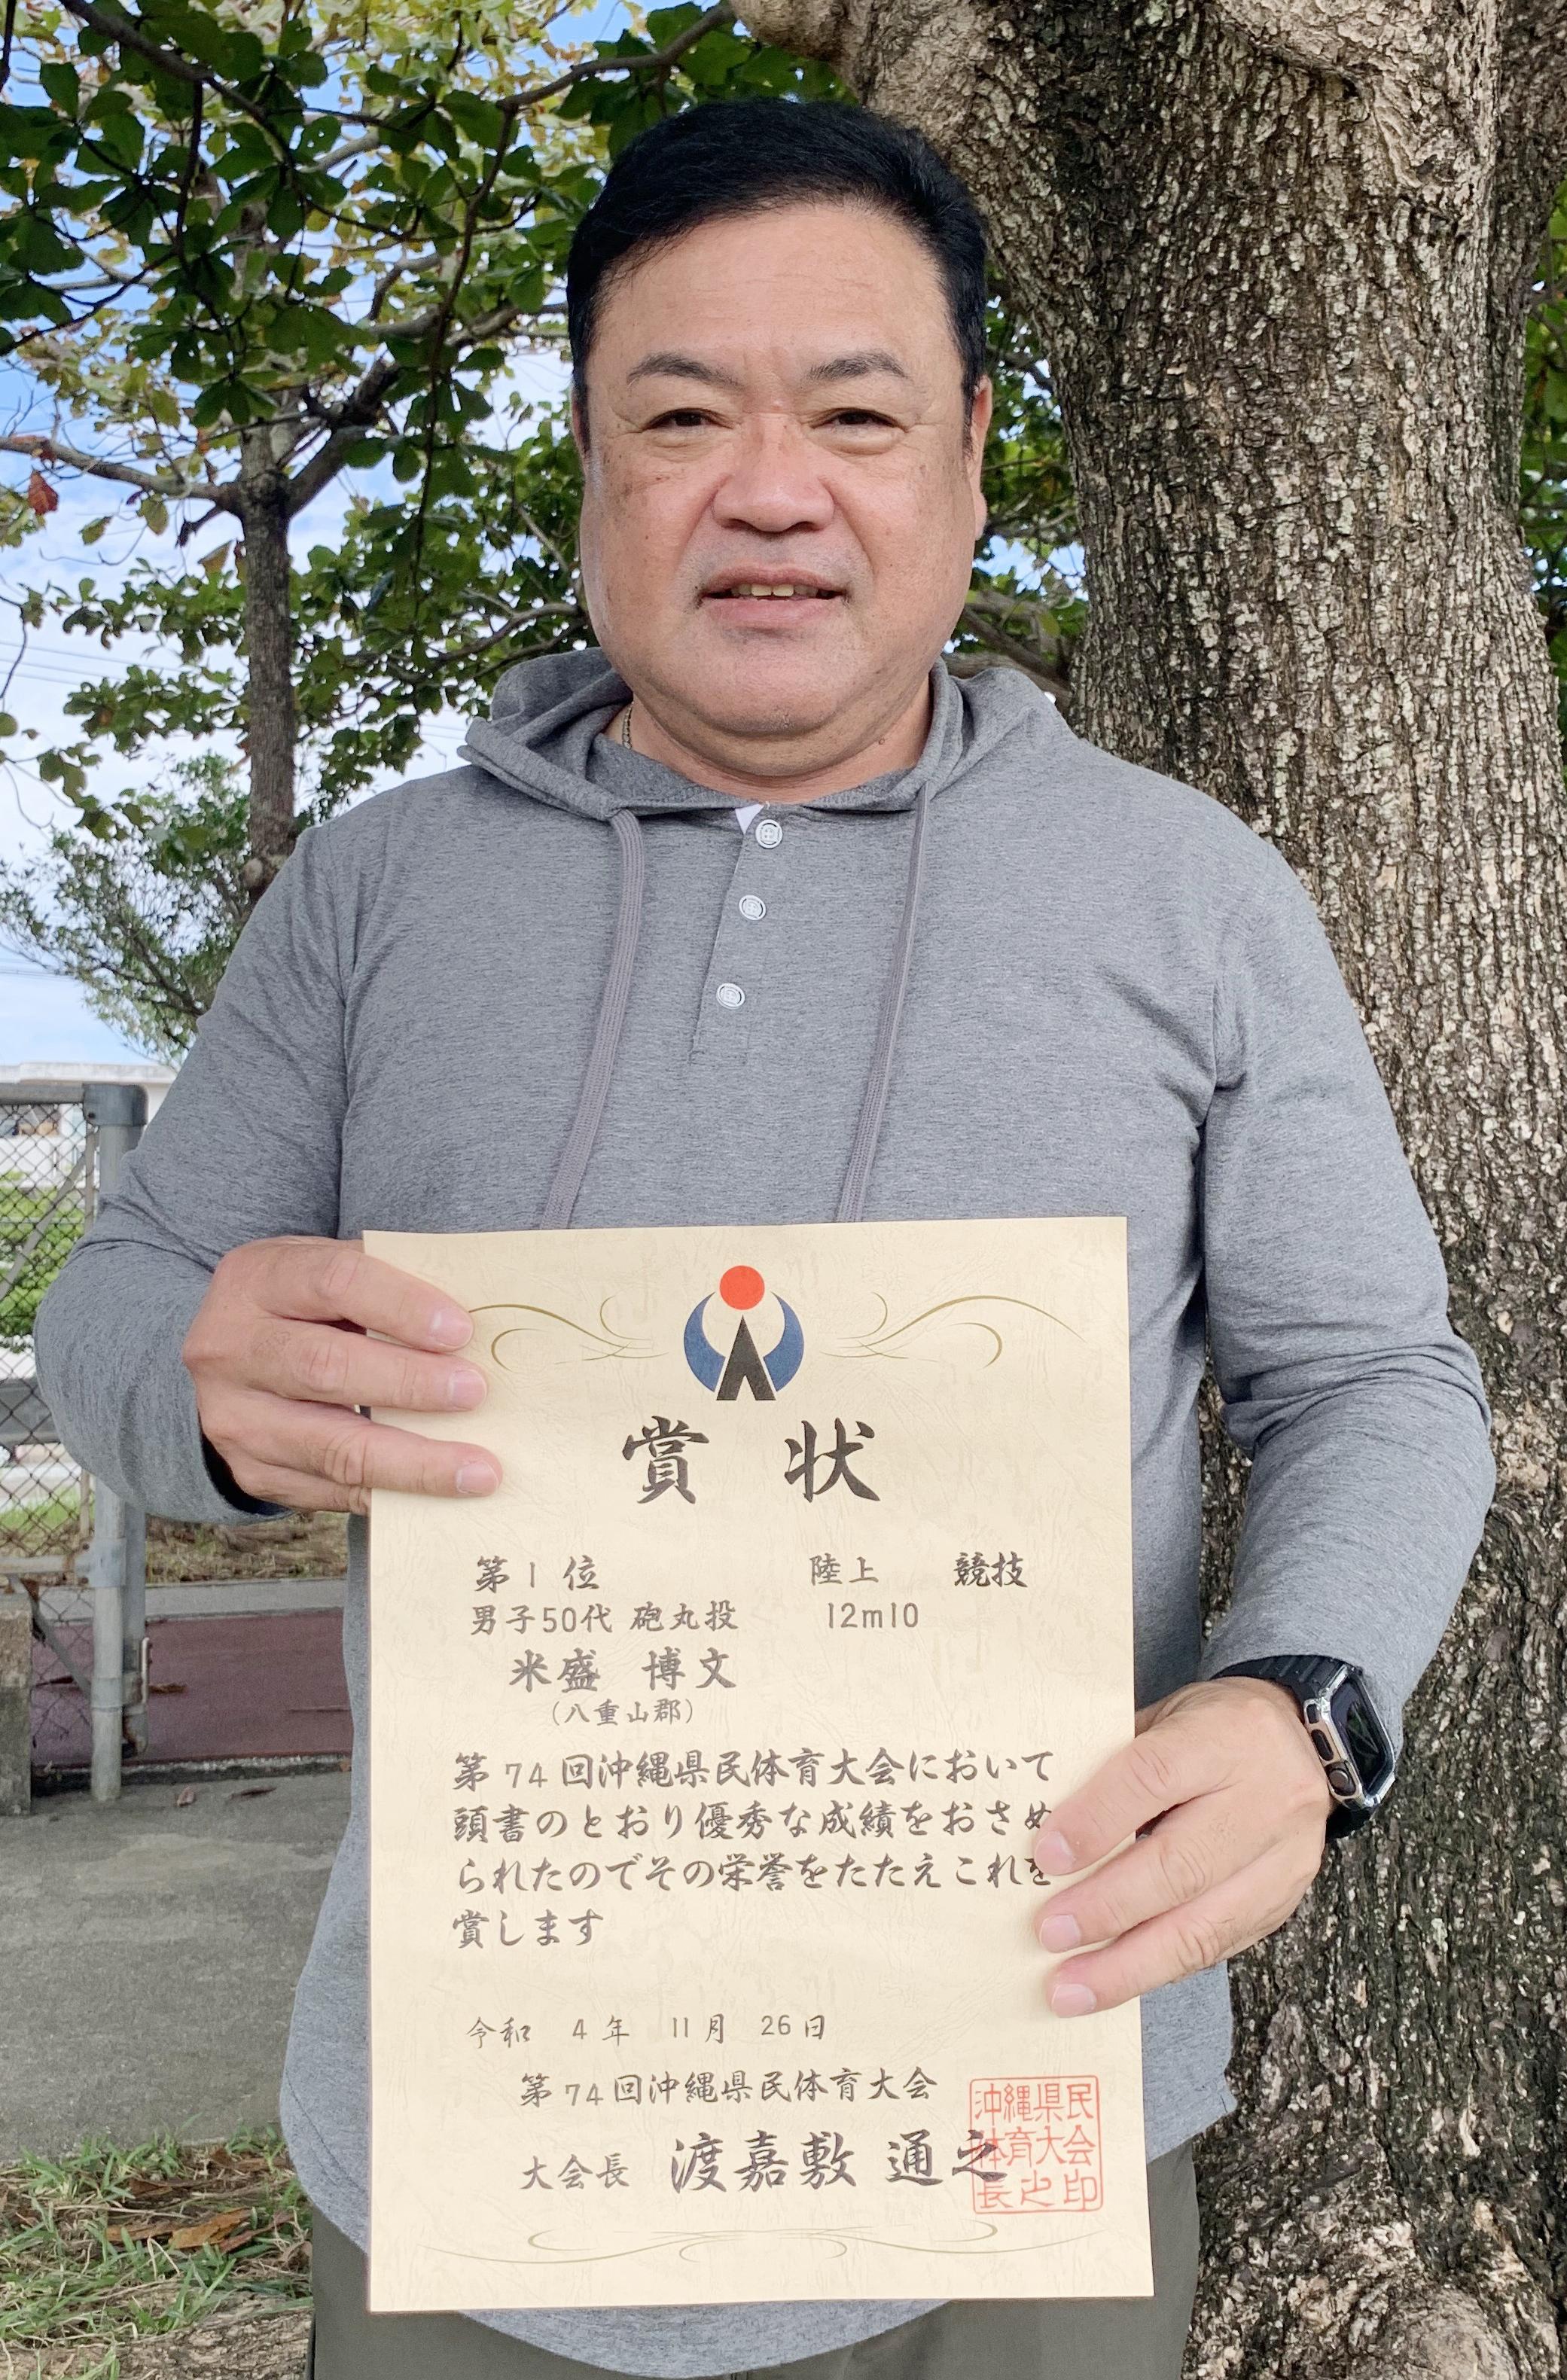 賞状
第1位 陸上 競技
男子50代 砲丸投 12m10
米盛 博文
(八重山郡)
第74回沖縄県民体育大会において
頭書のとおり優秀な成績をおさめ
られたのでその栄誉をたたえこれを
賞します
令和 4年 11月 26日
第74回沖縄県民体育大会
大会長 渡嘉敷 通之
沖縄県民
体育大会
長之印